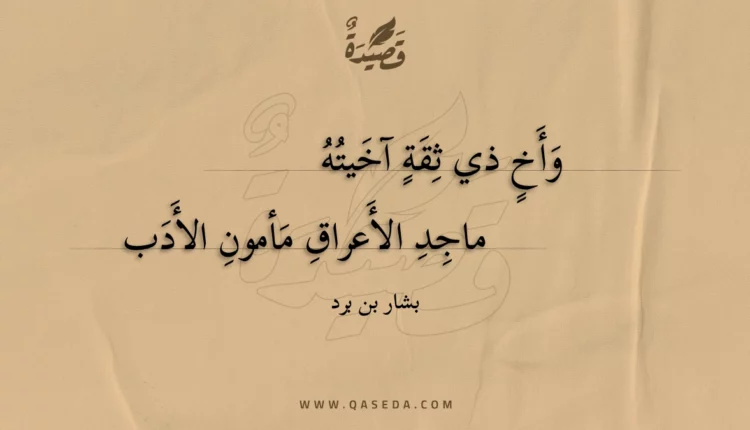 قَصِيدَةٌ
وَأَخٍ ذي ثِقَةٍ آخَيتُهُ
ماجِدِ الأَعراقِ مَأمونِ الأَدَب
بشار بن برد
WWW.QASEDA.COM